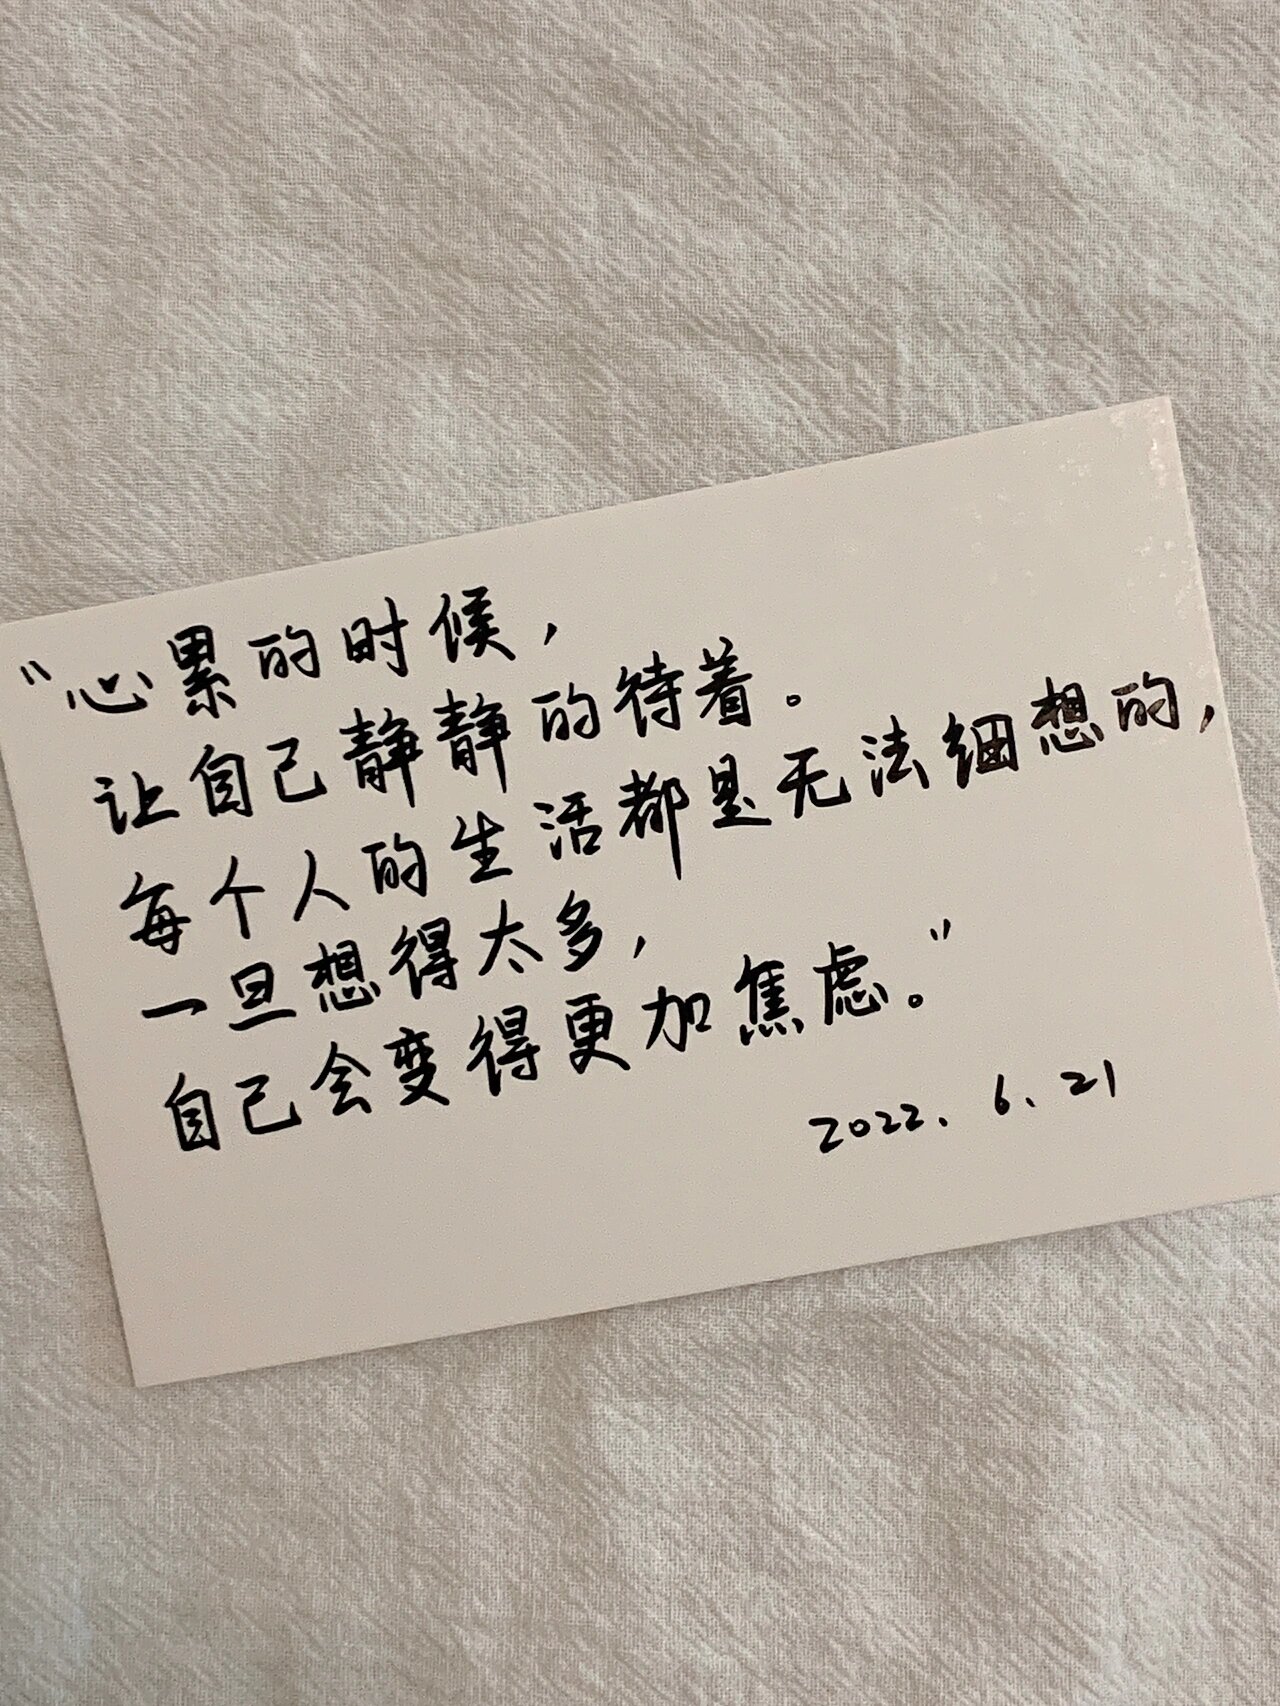 “心累的时候，
让自己静静的待着。
每个人的生活都是无法细想的，
一旦想得太多，
自己会变得更加焦虑。”
2022.6.21